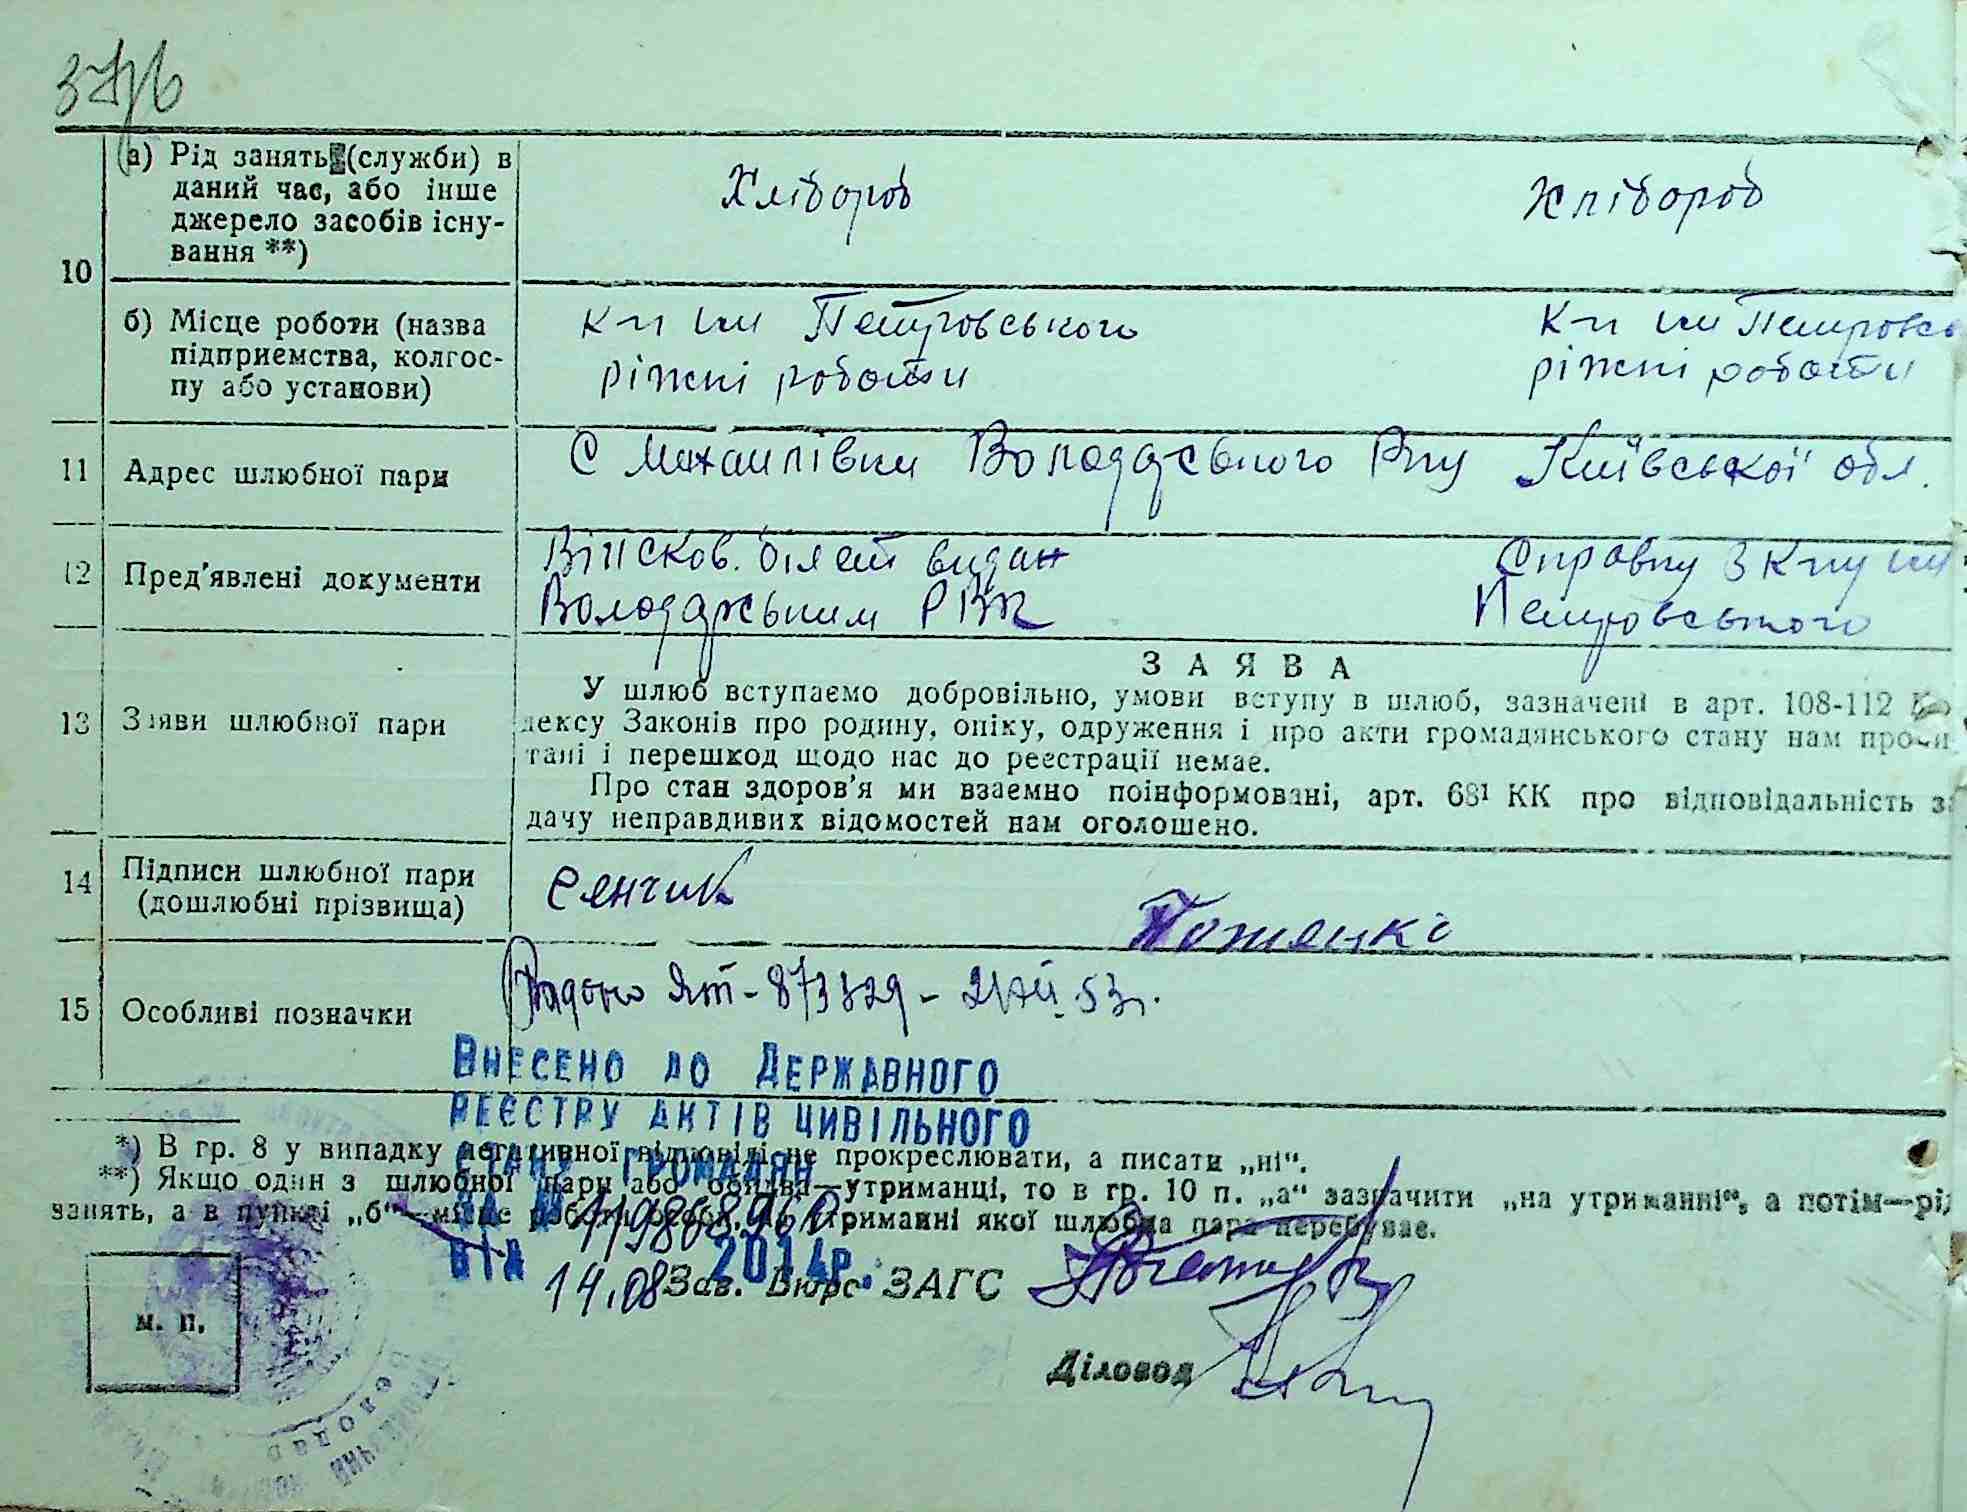 а) Рід занять (служби) в
даний час, або інше
джерело засобів існу-
вання **)
10
Хлібороб
Хлібороб
б) Місце роботи (назва
підприємства, колгос-
пу або установи)
К-п ім Петровського
ріжні роботи
К-п ім Петровсь
ріжні роботи
11 Адрес шлюбної пари
С Михаилівки Володарського Р-ну Київської обл.
12 Пред'явлені документи
Війсков. білет видан
Володарським РВК
Справку з К-пу ім
Петровського
13 Заяви шлюбної пари
ЗАЯВА
У шлюб вступаємо добровільно, умови вступу в шлюб, зазначені в арт. 108-112 Ко
дексу Законів про родину, опіку, одруження і про акти громадянського стану нам прочи
тані і перешкод щодо нас до реєстрації немає.
Про стан здоров'я ми взаємно поінформовані, арт. 68¹ КК про відповідальність за
дачу неправдивих відомостей нам оголошено.
14 Підписи шлюбної пари
(дошлюбні прізвища)
Сянчик
15 Особливі позначки
Видано
53г.
ВНЕСЕНО ДО ДЕРЖАВНОГО
РЕЄСТРУ АКТІВ ЦИВІЛЬНОГО
СТАНУ ГРОМАДЯН
ЗА №
ВІД 14.08 2014р.
*) В гр. 8 у випадку негативної відповіді не прокреслювати, а писати „ні“.
**) Якщо один з шлюбної пари або обидва—утриманці, то в гр. 10 п. „а“ зазначити „на утриманні“, а потім—рід
занять, а в пункті „б“—місце роботи особи, на утриманні якої шлюбна пара перебуває.
Зав. Бюро ЗАГС
м. п.
Діловод